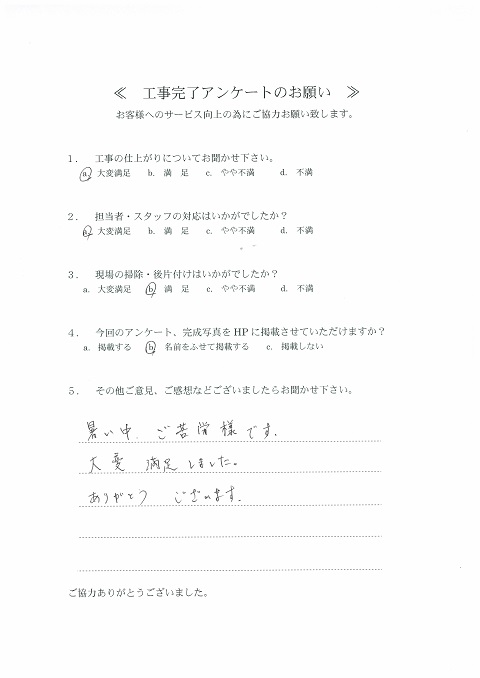 ≪　工事完了アンケートのお願い　≫
お客様へのサービス向上の為にご協力お願い致します。
1．　工事の仕上がりについてお聞かせ下さい。
a. 大変満足　b. 満　足　c. やや不満　d. 不満
2．　担当者・スタッフの対応はいかがでしたか？
a. 大変満足　b. 満　足　c. やや不満　d. 不満
3．　現場の掃除・後片付けはいかがでしたか？
a. 大変満足　b. 満　足　c. やや不満　d. 不満
4．　今回のアンケート、完成写真をHPに掲載させていただけますか？
a. 掲載する　b. 名前をふせて掲載する　c. 掲載しない
5．　その他ご意見、ご感想などございましたらお聞かせ下さい。
暑い中、ご苦労様です。
大変 満足しました。
ありがとう ございます。
ご協力ありがとうございました。